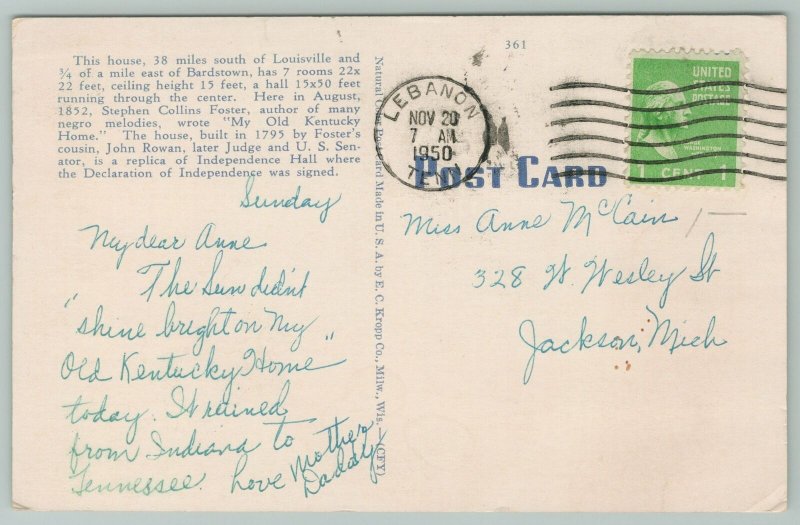 This house, 38 miles south of Louisville and
¾ of a mile east of Bardstown, has 7 rooms 22x
22 feet, ceiling height 15 feet, a hall 15x50 feet
running through the center. Here in August,
1852, Stephen Collins Foster, author of many
negro melodies, wrote "My Old Kentucky
Home." The house, built in 1795 by Foster's
cousin, John Rowan, later Judge and U. S. Sen-
ator, is a replica of Independence Hall where
the Declaration of Independence was signed.
Sunday
My dear Anne
The Sun didn't
"shine bright on My
Old Kentucky Home"
today. It rained
from Indiana to
Tennessee. Love Mother
Daddy
Natural Color Post Card Made in U. S. A. by E. C. Kropp Co., Milw., Wis.
361
LEBANON
NOV 20
7 AM
1950
TENN
POST CARD
UNITED
STATES
POSTAGE
WASHINGTON
1 CENT 1
Miss Anne McCain
328 W. Wesley St
Jackson, Mich